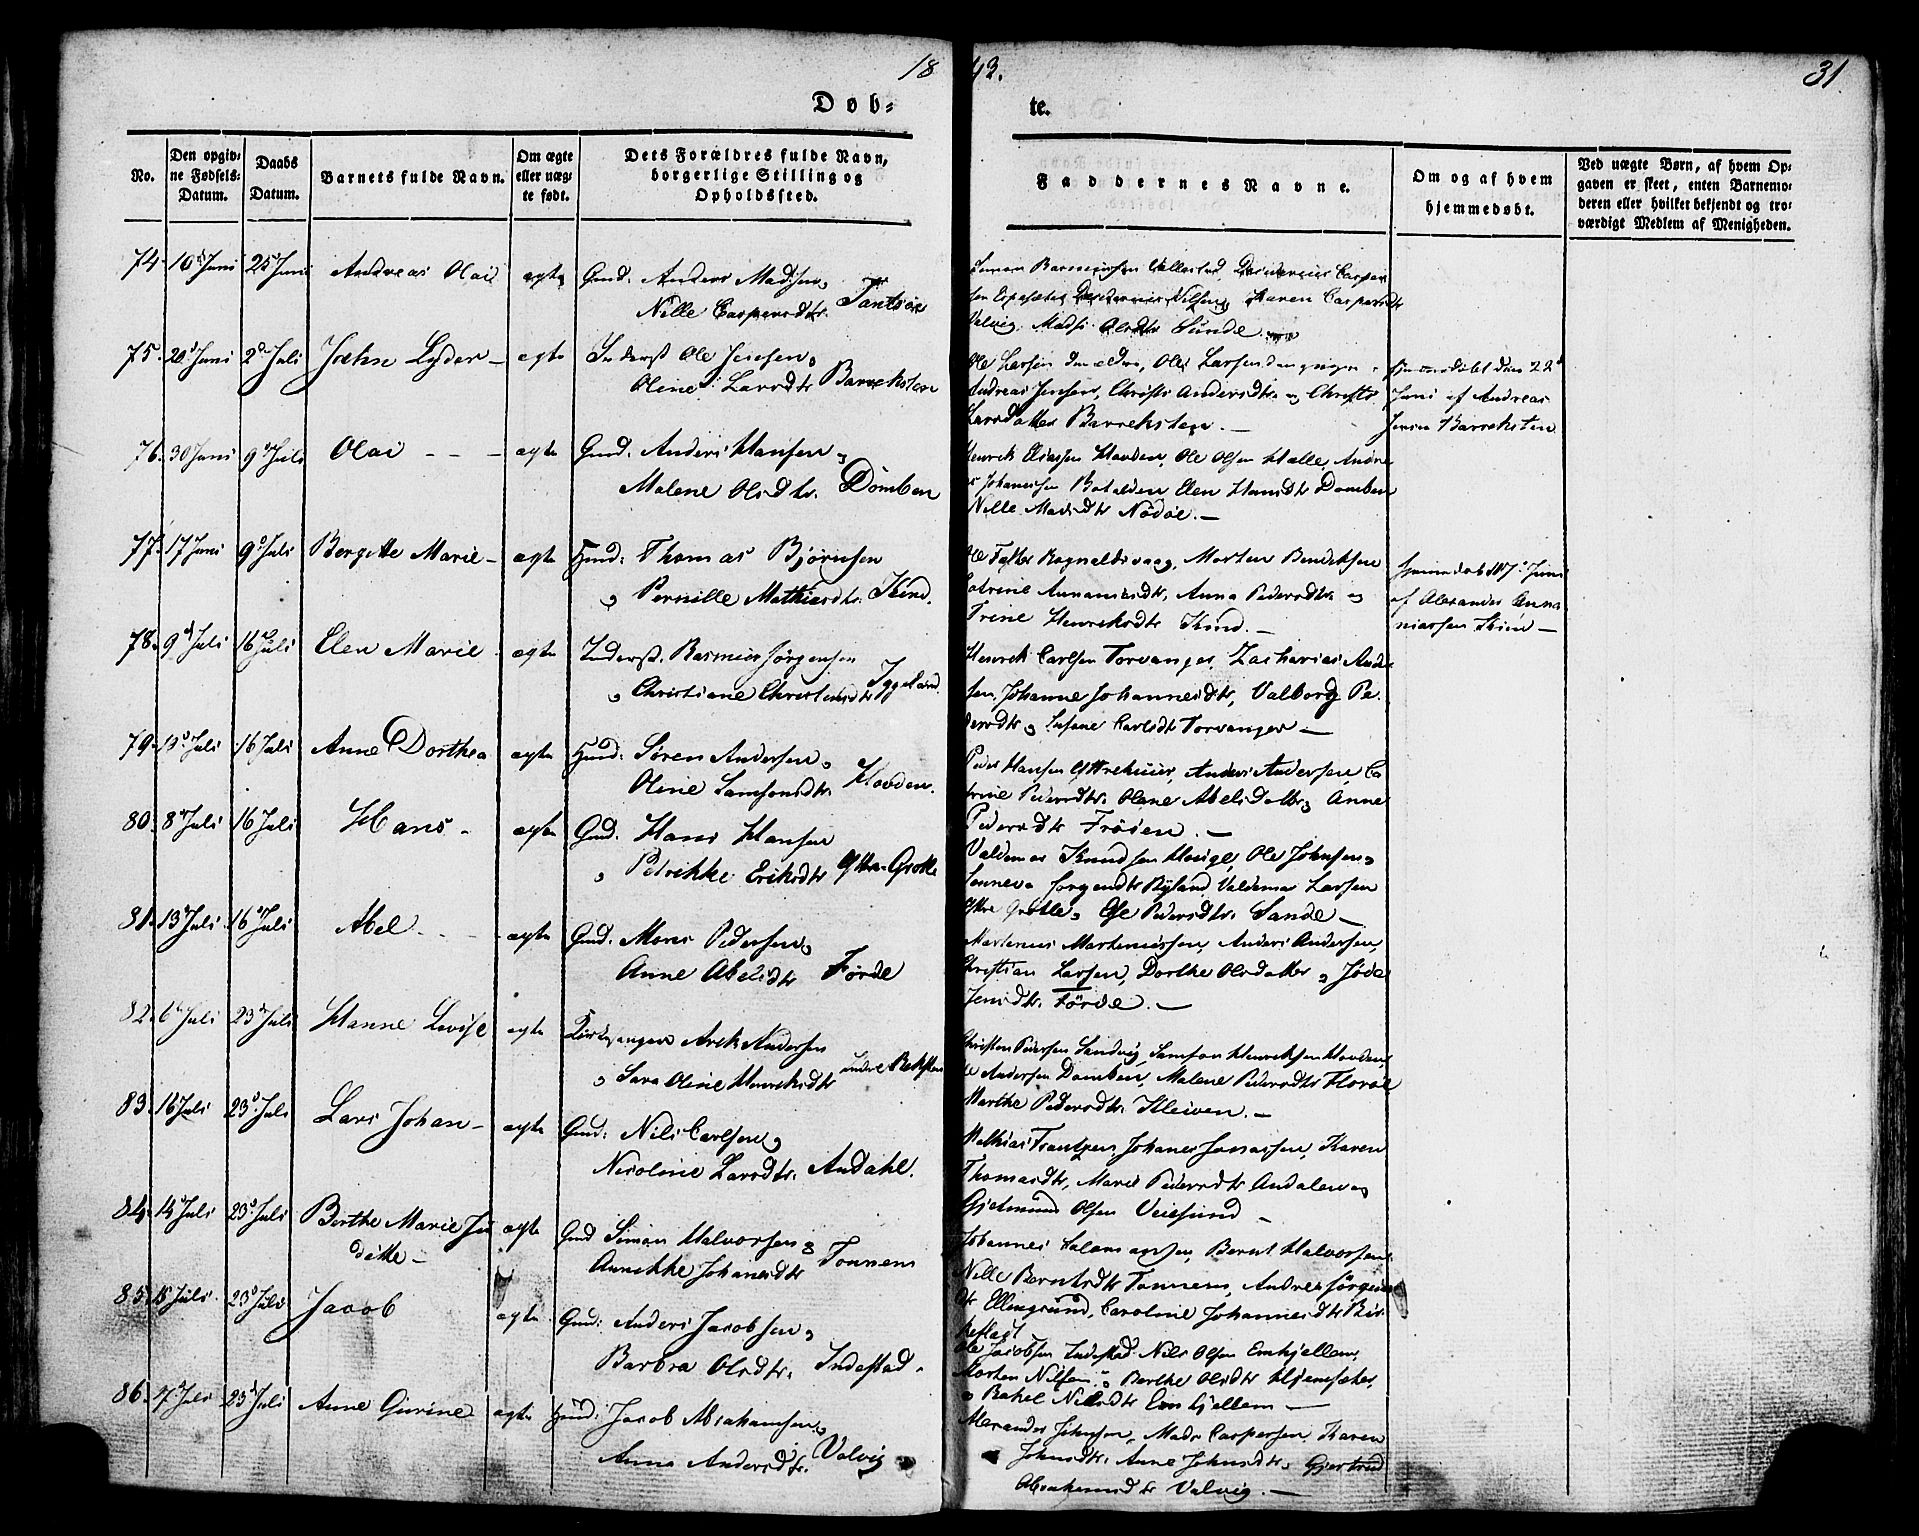 18
43.
31
Døb-
te.
No.
Den opgiv-
ne Fødsels-
Datum.
Daabs
Datum.
Barnets fulde Navn.
Om ægte
eller uæg-
te født.
Dets Forældres fulde Navn,
borgerlige Stilling og
Opholdssted.
Faddernes Navne.
Om og af hvem
hjemmedøbt.
Ved uægte Børn, af hvem Op-
gaven er skeet, enten Barnemo-
deren eller hvilket bekjendt og tro-
værdigt Medlem af Menigheden.
74. 10 Juni 25 Juni Andreas Olai ægte Gmd. Anders Madsen
Nille Caspersdtr.
Karen Caspersdtr
Valvig, Olsdtr Sunde
75. 20 Juni 2 Juli Lyder ægte Inderst Ole Jensen
Oline Larsdtr Barreksten
Ole Larsen den ældre, Ole Larsen den yngre
Andreas Jensen, Christi Andersdtr. og Christi
Larsdatter Barreksten.
hjemmedøbt den 22
Juni af Andreas
Jensen Barreksten
76. 30 Juni 9 Juli Olai ægte Gmd. Anders Hansen
Malene Olsdtr. Domben
Henrik Eliassen Hovden, Ole Olsen Halle, Andre
as Johannessen Batalden Elen Hansdtr Domben
Nille Madsdtr Nødøe.
77. 17 Juni 9 Juli Bergitte Marie ægte Hmd: Thomas Bjørnsen
Pernille Mathiasdtr. Kind.
Ole Falker Rognaldsvaag, Morten Bendiksen
Anna Pedersdtr. og
Trine Henriksdtr Kind.
hjemdøb 17 Juni
af Alexander Anna
niassen Kind
78. 9 Juli 16 Juli Elen Marie ægte Inderst. Rasmus Jørgensen
Christiane Christensdtr Iggeland
Henrik Carlsen Torvanger, Zacharias Ander
sen, Johanne Johannesdtr, Valborg Pe-
dersdtr, Susane Carlsdtr Torvanger
79. 13 Juli 16 Juli Anne Dorthea ægte Hmd: Søren Andersen
Oline Samsonsdtr. Hovden.
Peder Hansen Anders Andersen, Ca
trine Pedersdtr. Olene Abelsdatter, Anne
Pedersdtr Frøien.
80. 8 Juli 16 Juli Hans ægte Gmd. Hans Hansen
Petrikke Eriksdtr Yttre Grotle
Valdemar Knudsen Hauge, Ole Johnsen
Jørgensdtr Ryland Valdemar Larsen
Yttre Grotle, Pedersdtr. Sande
81. 13 Juli 16 Juli Abel ægte Gmd. Mons Pedersen
Anne Abelsdtr Førde
Martinus Martinussen, Anders Andersen,
Christian Larsen, Dorthe Olsdatter
Jensdtr. Førde.
82. 6 Juli 23 Juli Hanne Lovise ægte Kirkesanger Andersen
Sara Oline Henriksdtr indre
Christen Pedersen Sandvig, Samson Henriksen Hovden,
Andersen Domben, Malene Pedersdtr Florøe
Marthe Pedersdtr. Kleiven.
83. 16 Juli 23 Juli Lars Johan ægte Gmd: Nils Carlsen
Nicoline Larsdtr. Andahl.
Mathias Frantzen Johanes Jonassen, Karen
Thomasdtr, Marie Pedersdtr Andalen
Gjetmund Olsen Veiesund
84. 14 Juli 23 Juli Berthe Marie Ju
ditte ægte Gmd Simon Halvorsen
Annikke Johanesdtr Tonnem
Johannes Salamonsen, Bernt Halvorsen
Nille Berntsdtr Tonnem, Jørgens
dtr Ellingsund, Caroline Johannesdtr
85. 18 Juli 23 Juli Jacob ægte Gmd: Anders Jacobsen
Barbra Olsdtr. Indestad
Ole Jacobsen Indestad Nils Olsen Emhjellem,
Morten Nilsen, Berthe Olsdtr
Rakel Nilsdtr Emhjellem
86. 7 Juli 23 Juli Anne Gurine ægte Hmd: Jacob Abrahamsen
Anna Andersdtr. Valvig
Alexander Johnsen, Mads Caspersen, Karen
Johnsdtr. Anne Johnsdtr, Gjertrud
Abrahamsdtr Valvig.